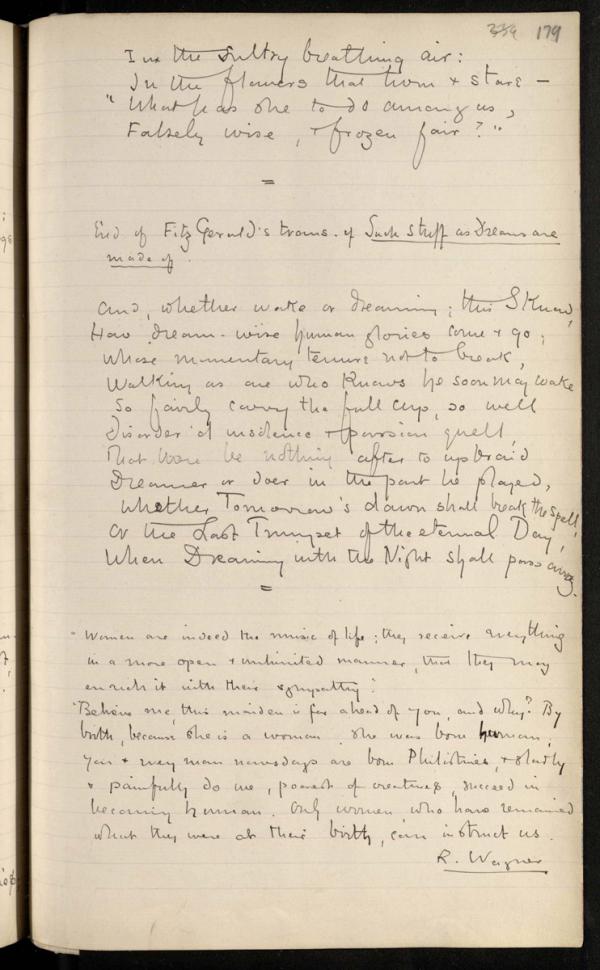 339 179
In the sultry breathing air:
In the flowers that turn & stare –
"What has she to do among us,
Falsely wise, & frozen fair?"
=
End of FitzGerald's trans. of Such stuff as Dreams are
made of.
And, whether wake or dreaming; this I know,
How dream-wise human glories come & go;
Whose momentary tenure not to break,
Walking as one who knows he soon may wake
So fairly carry the full cup, so well
Disorder'd insolence & passion quell,
That there be nothing after to upbraid
Dreamer or doer in the part he played,
Whether Tomorrow's dawn shall break the spell,
Or the Last Trumpet of the eternal Day,
When Dreaming with the Night shall pass away.
=
"Women are indeed the music of life; they receive everything
in a more open & unlimited manner, that they may
enrich it with their sympathy."
"Believe me, this maiden is far ahead of you, and why? By
birth, because she is a woman. She was born human;
You & every man nowadays are born Philistines, & slowly
& painfully do we, poorest of creatures, succeed in
becoming human. Only women, who have remained
what they were at their birth, can instruct us.
R. Wagner